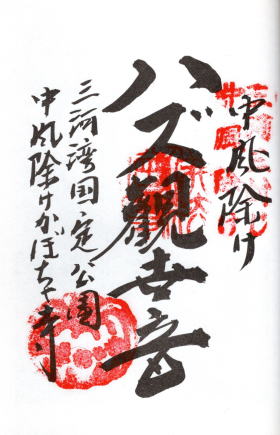 中風除け
ハズ觀世音
三河湾国定公園
中風除けかぼちゃ寺